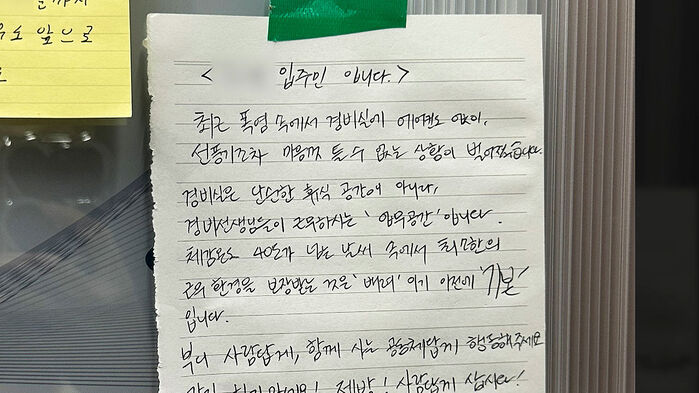 까지
앞으로
< 입주민 입니다.>
최근 폭염 속에서 경비실에 에어컨도 없이,
선풍기조차 마음껏 틀 수 없는 상황이 벌어졌습니다.
경비실은 단순한 휴식 공간이 아니라,
경비선생님들이 근무하시는 '업무공간' 입니다.
체감온도 40도가 넘는 날씨 속에서 최소한의
근무 환경을 보장받는 것은 '배려' 이기 이전에 '기본'
입니다.
부디 사람답게, 함께 사는 공동체답게 행동해주세요
제발! 사람답게 삽시다!